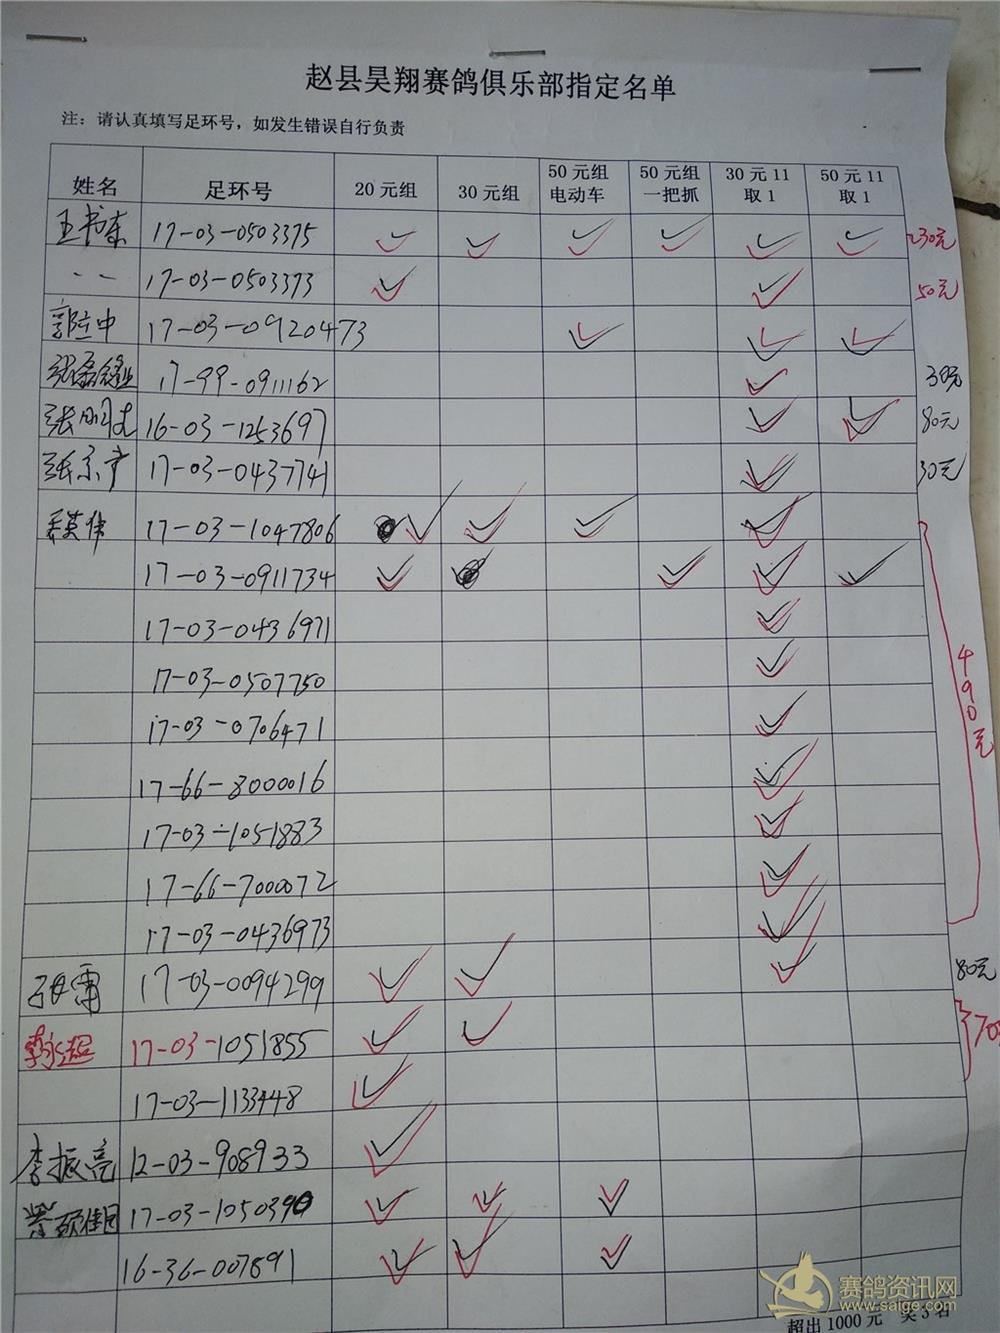 赵县昊翔赛鸽俱乐部指定名单
注：请认真填写足环号，如发生错误自行负责
姓名 足环号 20元组 30元组 50元组电动车 50元组一把抓 30元11取1 50元11取1
王书东 17-03-0503375 ✓ ✓ ✓ ✓ ✓ ✓ 230元
、、 17-03-0503373 ✓ ✓ 50元
郭立中 17-03-0920473 ✓ ✓ ✓
17-99-0911162 ✓ 30元
张朋丈 16-03-1253697 ✓ ✓ 80元
张京彦 17-03-0437741 ✓ 30元
英伟 17-03-1047806 ✓ ✓ ✓ ✓
17-03-0911734 ✓ ✓ ✓ ✓
17-03-0436971 ✓
17-03-0507750 ✓
17-03-0706471 ✓
490元
17-66-8000016 ✓
17-03-1051883 ✓
17-66-7000072 ✓
17-03-0436973 ✓
雷 17-03-0094299 ✓ ✓ ✓ 80元
17-03-1051855 ✓ ✓ 70
17-03-1133448 ✓
李振亮 12-03-908933 ✓
17-03-1050390 ✓ ✓ ✓
16-36-007891 ✓ ✓ ✓
超出1000元 奖3名
赛鸽资讯网
www.saige.com